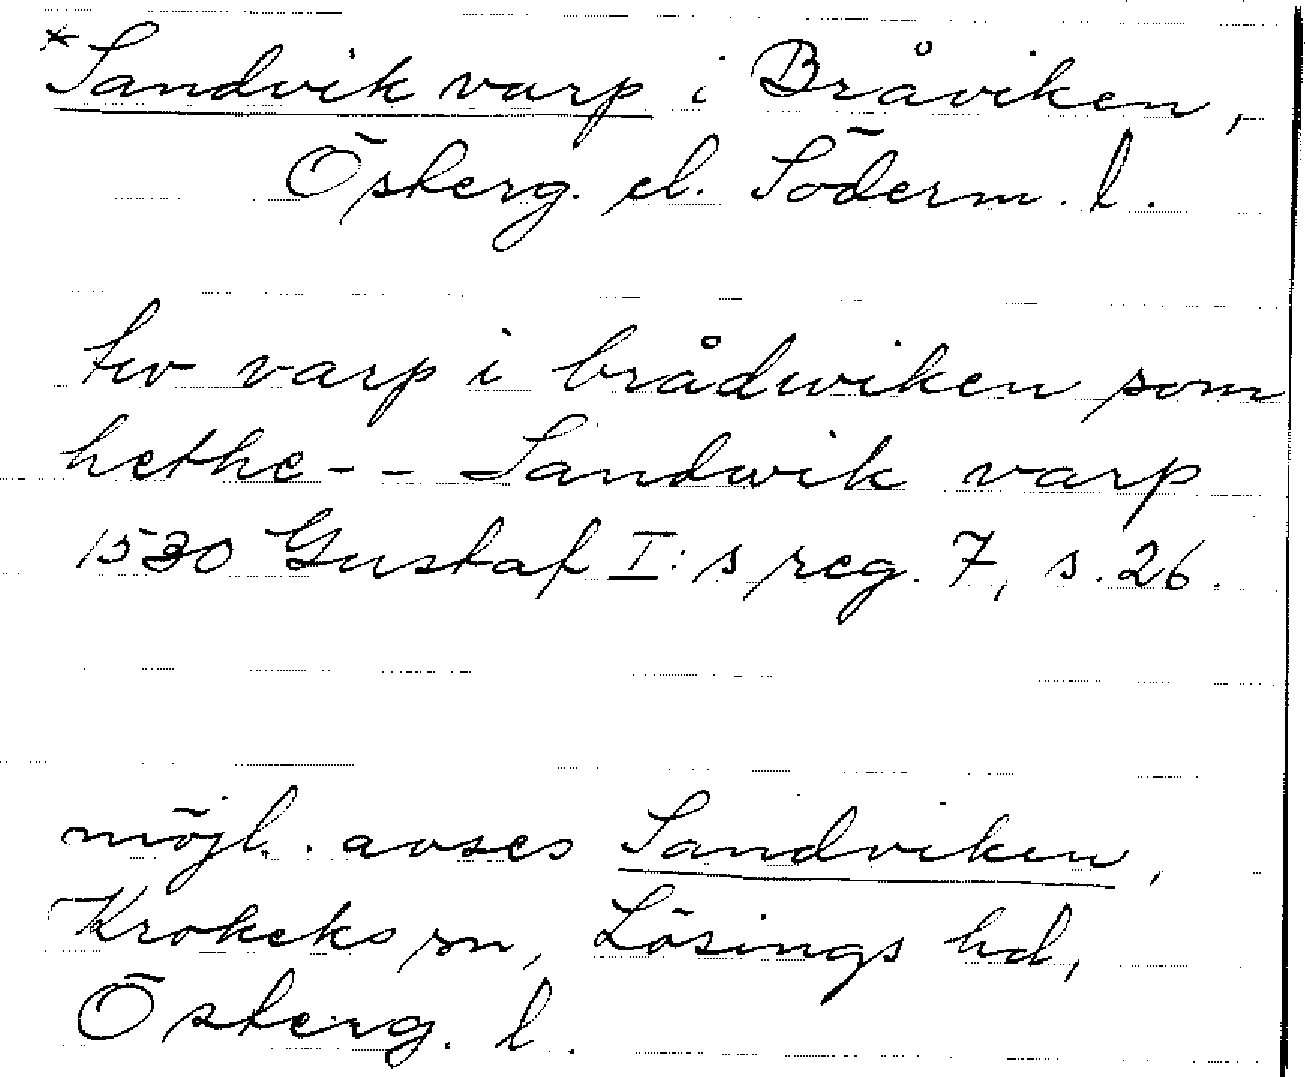 *Sandvik varp i Bråviken,
Österg. el. Söderm. l.
tw varp i brådwiken som
hethe - - Sandwik varp
1530 Gustaf I:s reg. 7, s. 26.
möjl. avses Sandviken,
Krokeks sn, Lösings hd,
Österg. l.